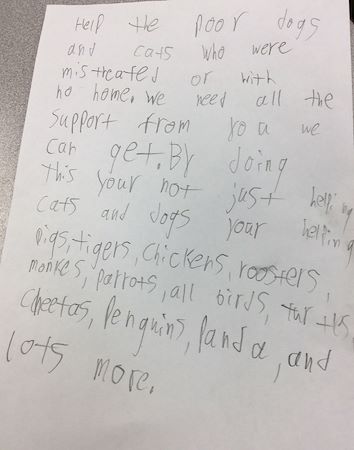 Help the poor dogs
and cats who were
mistreated or with
no home. We need all the
support from you we
can get. By doing
this your not just helping
cats and dogs your helping
pigs, tigers, chickens, roosters,
monkes, parrots, all birds, turtles,
cheetas, Penguins, Panda, and
lots more.